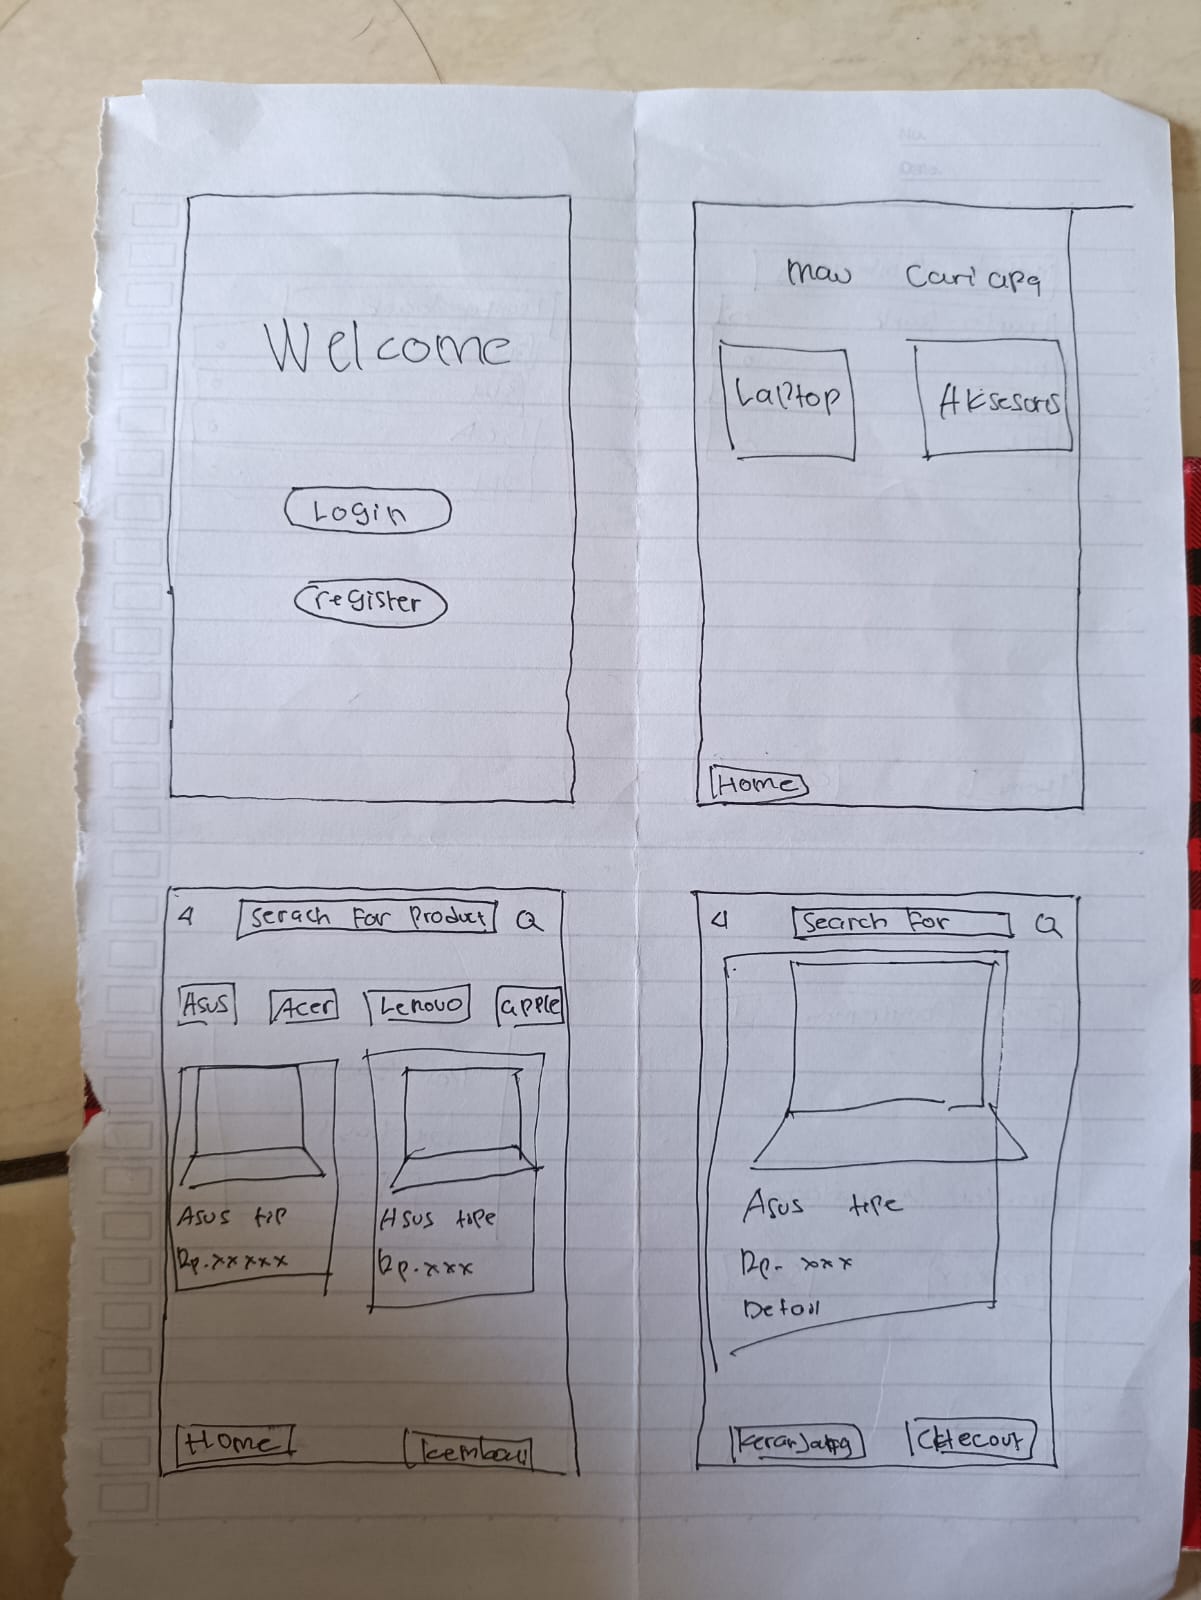 Welcome
Login
register
mau Cari apa
Laptop
Aksesoris
Home
Serach For Product
Asus
Acer
Lenovo
apple
Asus tip
Rp.xxxxx
Asus tipe
Rp.xxx
Home
kembali
Search For
Asus tipe
Rp- xxx
Detail
keranjang
CHecout